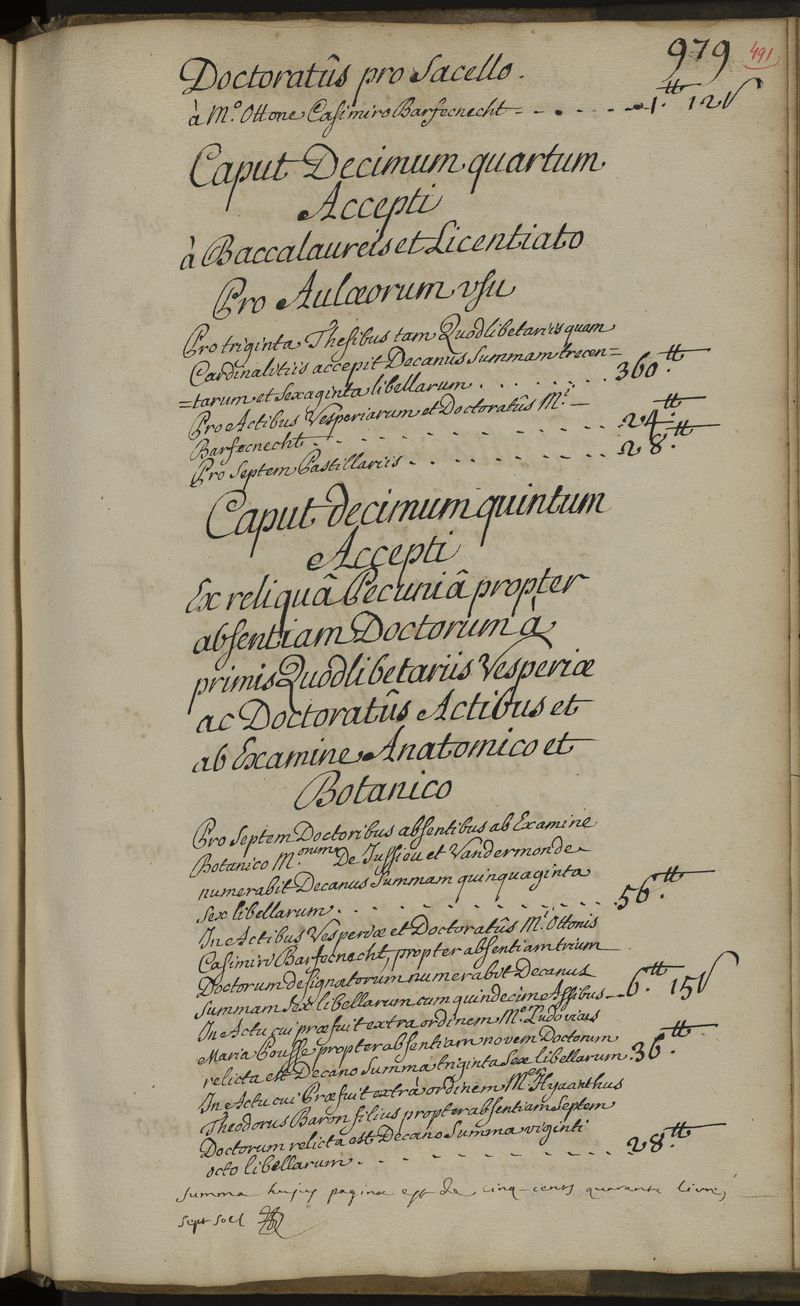 979 491
Doctoratûs pro Sacello.
à M.º Ottone Casimiro Barfecnecht - - - - - 1.tt 12 s
Caput Decimum quartum
Accepti
à Baccalaureis et Licentiato
Pro Aulæorum usu
Pro triginta Thesibus tam Quodlibetariis quam
Cardinalitiis accepit Decanus Summam trecen=
=tarum et Sexaginta libellarum . . . . . . . 360.tt
Pro Actibus Vesperiarum et Doctoratûs M.i
Barfecnecht. - - - - - - - - - - - 24.tt
Pro Septem Pastillariis - - - - - - - - 28.tt
Caput decimum quintum
Accepti
Ex reliquâ Pecuniâ propter
absentiam Doctorum à
primis Quodlibetariis Vesperiæ
ac Doctoratûs Actibus et
ab Examine Anatomico et
Botanico
Pro Septem Doctoribus absentibus ab Examine
Botanico M.orum De Jussieu et Vandermonde
numerabit Decanus Summam quinquaginta
Sex libellarum. . . . . . . . . . . . . 56.tt
In Actibus Vesperiæ et Doctoratûs M.i Ottonis
Casimiri Barfecnecht, propter absentiam trium
Doctorum designatorum numerabit Decanus
Summam Sex libellarum cum quindecim Assibus - - 6.tt 15 s
In Actu cui præfuit extra ordinem M.e Ludovicus
Maria Pousse propter absentiam novem Doctorum
relicta est Decano Summa triginta Sex libellarum. 36.tt
In Actu cui Præfuit extrà ordinem M.er Hyacinthus
Theodorus Baron filius propter absentiam Septem
Doctorum relicta est Decano Summa viginti
octo libellarum. - - - - - - - - - - 28.tt
Summa hujus paginæ est de cinq-cents quarante livres
sept sols